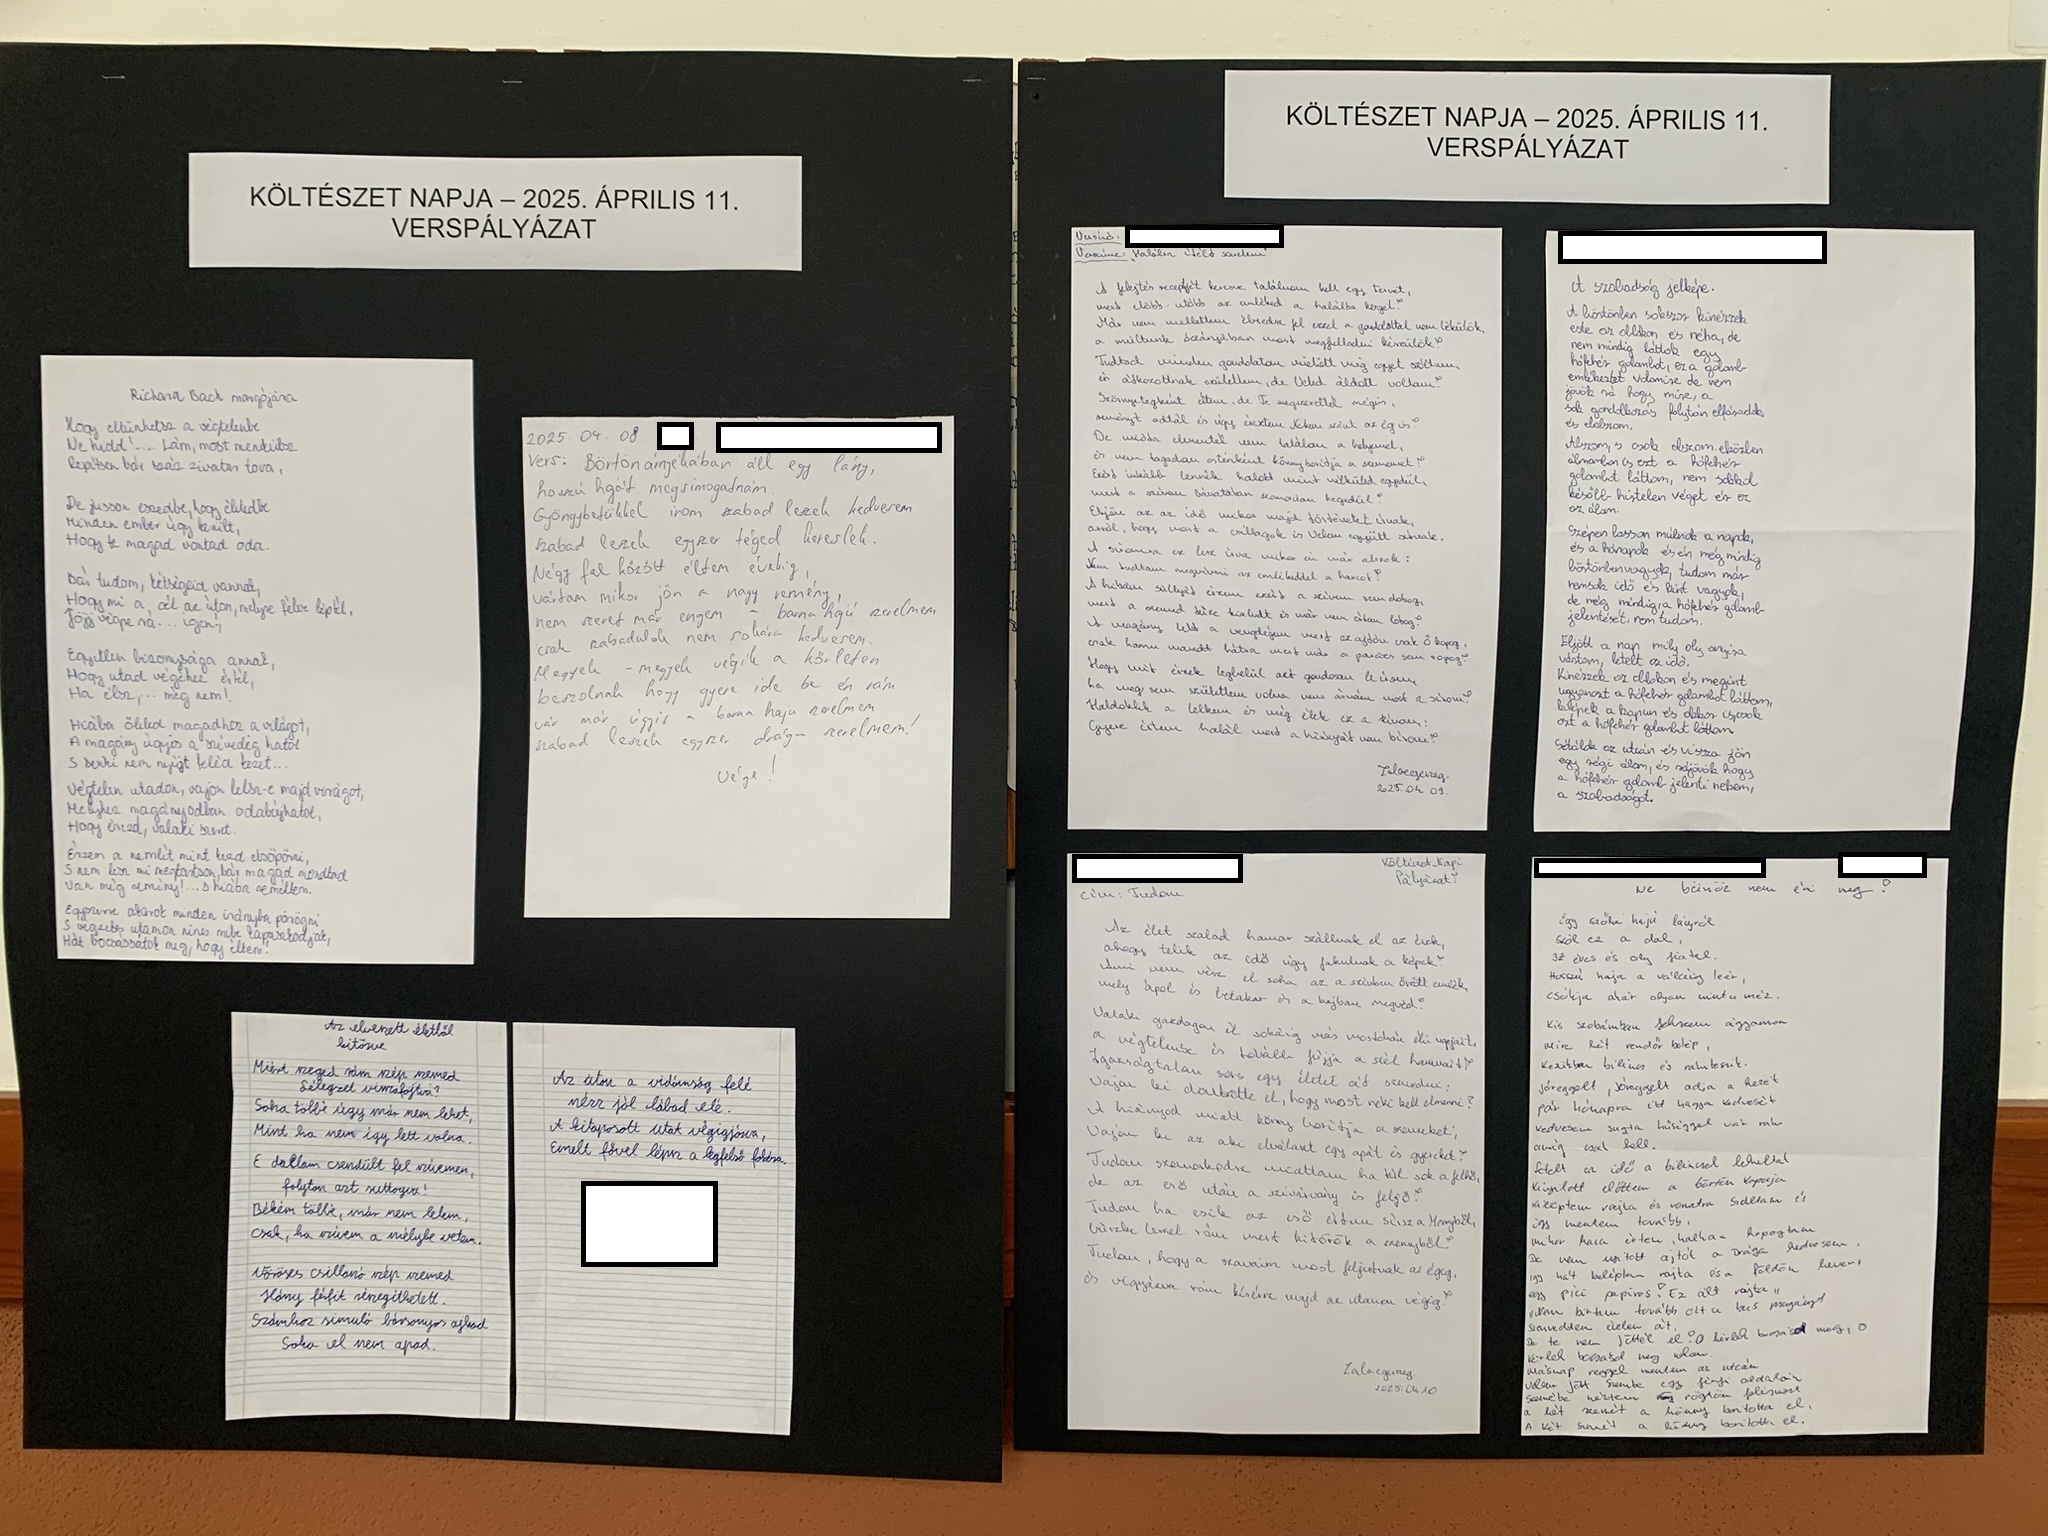 KÖLTÉSZET NAPJA – 2025. ÁPRILIS 11.
VERSPÁLYÁZAT
Richard Bach margójára
Hogy eltűnhetsz a végtelenbe
Ne hidd!.... Lám, most mendülsz
Repítsen bár száz zivatar tova,
De jusson eszedbe, hogy életedbe
Minden ember úgy került,
Hogy te magad vontad oda.
Bár tudom, kétségeid vannak,
Hogy mi a cél az úton, melyre félve léptél,
Jöjj végre rá... igen,
Egyetlen bizonysága annak,
Hogy utad végéhez értél,
Ha élsz,... még nem!
Hiába öleled magadhoz a világot,
A magány úgyis a szívedig hatol
S senki nem nyújt feléd kezet...
Végtelen utadon, vajon lelsz-e majd virágot,
Melyhez magányodban odabújhatol,
Hogy érezd, valaki szeret.
Érzem a nemlét mint kezd elsöpörni,
S nem lesz mi megtartson, bár magad mondtad
Van még remény!... s hiába reméltem.
Egyszerre akarok minden irányba pörögni
S végzetes utamon nincs mibe kapaszkodjak,
Hát bocsássátok meg, hogy éltem!
2025. 04. 08
Vers: Börtön árnyékában áll egy lány,
hosszú haját megsimogatnám.
Gyöngybetűkkel írom szabad leszek kedvesem
szabad leszek egyszer téged kereslek.
Négy fal között éltem évekig,
vártam mikor jön a nagy remény,
nem szeret már engem a barna hajú szerelmem
csak szabadulok nem sokára kedvesem.
Megyek - megyek végik a körleten
beszolnak hogy gyere ide be én rám
vár már úgyis a barna haju szerelmem
szabad leszek egyszer drága szerelmem!
Vége!
Az elveszett élettől
kitörve
Miért szeged rám szép szemed
Lélegzet visszafojtva?
Soha többé úgy már nem lehet,
Mint ha nem így lett volna.
E dallam csendült fel szívemen,
folyton azt suttogva!
Békém többé, már nem lelem,
Csak, ha szívem a mélybe vetem.
Vöröses csillanó szép szemed
Hány férfit részegíthetett.
Számhoz simuló bársonyos ajkad
Soha el nem apad.
Az úton a vidámság felé
nézz jól lábad elé.
A kitaposott utat végigjárva,
Emelt fővel lépsz a legfelső fokára.
KÖLTÉSZET NAPJA – 2025. ÁPRILIS 11.
VERSPÁLYÁZAT
Versíró:
Verscíme: Halálra ítélő szerelem
A felejtés receptjét keresve találnom kell egy tervet,
mert előbb-utóbb az emléked a halálba kerget!
Már nem mellettem ébredsz fel ezzel a gondolattal nem békülök,
a múltunk óceánjában most megfulladni készülök!
Tudtad minden gondolatom mielőtt még egyet szóltam,
én átkozottnak születtem, de Veled áldott voltam!
Szörnyetegként éltem, de Te megszerettél mégis,
reményt adtál és úgy éreztem Nekem szólt az ég is!
De mióta elmentél nem találom a helyemet,
és nem tagadom esténként könny borítja a szememet!
Ezért inkább lennék halott mint nélküled egyedül,
mert a szívem bánatában szomorúan hegedül!
Eljön az az idő mikor majd történetet írnak,
arról, hogy most a csillagok is Velem együtt sírnak.
A síromra ez lesz írva mikor én már alszok:
Nem tudtam megvívni az emlékeddel a harcot!
A hibám súlyát érzem ezért a szívem sem dobog,
mert a szemed tüze kialudt és már nem értem lobog!
A magány lett a vendégem mert az ajtón csak Ő kopog,
csak hamu maradt hátra mert már a parázs sem ropog!
Hogy mit érzek legbelül azt gondosan leírom,
ha meg sem születtem volna nem ásnám most a sírom!
Haldoklik a lelkem és még élek ez a kínom:
Gyere értem halál mert a hiányát nem bírom!
Zalaegerszeg.
2025.04.09.
A szabadság jelképe.
A börtönben sokszor kinézek
este az ablakon és néha, de
nem mindig látok egy
hófehér galambot, ez a galamb
emlékeztet valamire de nem
jövök rá hogy mire, a
sok gondolkozás folytán elfáradok,
és elalszom.
Alszom, s csak alszom, eközben
álmomban is ezt a hófehér
galambot látom, nem sokkal
később hirtelen véget ér ez
az álom.
Szépen lassan múlnak a napok,
és a hónapok és én még mindig
börtönben vagyok, tudom már
nemsok idő és kint vagyok,
de még mindig, a hófehér galamb
jelentését nem tudom.
Eljött a nap mily oly annyira
vártam, letelt az idő.
Kinézek az ablakon és megint
ugyanazt a hófehér galambot látom,
kilépek a kapun és akkor is csak
azt a hófehér galambot látom
Sétálok az utcán és vissza jön
egy régi álom, és rájövök hogy
a hófehér galamb jelenti nekem,
a szabadságot.
Költészet Napi
Pályázat!
Cím: Tudom
Az élet szalad hamar szállnak el az évek,
ahogy telik az idő úgy fakulnak a képek!
Ami nem vész el soha az a szívben őrzött emlék,
mely ápol és betakar és a bajban megvéd!
Valaki gazdagon él sokáig más mostohán éli napjait,
a végtelenbe és tovább fújja a szél hamvait!
Igazságtalan sors egy életet át szenvedni:
Vajon ki döntötte el, hogy most neki kell elmenni?
A hiányod miatt könny borítja a szemeket,
Vajon ki az aki elválaszt egy apát és gyereket?
Tudom szomorkodsz miattam ha túl sok a felhő,
de az eső után a szivárvány is feljő!
Tudom ha esik az eső értem sírsz a Mennyből,
büszke leszel rám mert kitörök a szennyből!
Tudom, hogy a szavaim most feljutnak az égig,
és vigyázva rám kísérsz majd az utamon végig!
Zalaegerszeg.
2025.04.10
Ne bűnözz nem éri meg!
Egy szőke hajú lányról
szól ez a dal,
32 éves és oly fiatal.
Hosszú haja a válláig leér,
csókja akár olyan mint a méz.
Kis szobámban fekszem ágyamon
Mire két rendőr belép,
Kezükben bilincs és
jóreggelt, jóreggelt adja a kezét
pár hónapra itt hagyja kedvesét
kedvesem súgta hűséggel vár rám
amíg csak kell.
Letelt az idő a bilincsel
Kinyílott előttem a börtön kapuja
kiléptem rajta és vonatra szálltam és
így mentem tovább,
mikor haza értem, halkan kopogtam
De nem nyitott ajtót a drága kedvesem.
így hát beléptem rajta és a földön hever,
egy pici papíros! Ez állt rajta
nem bírtam tovább ezt a magányt
szenvedtem életem át.
De te nem jöttél el! kérlek bocsásd meg,
Kérlek bocsásd meg nekem.
Másnap reggel mentem az utcán
velem jött szembe egy férfi oldalán
szemébe néztem rögtön felismert
a két szemét a könny borította el.
A két szemét a könny borította el.